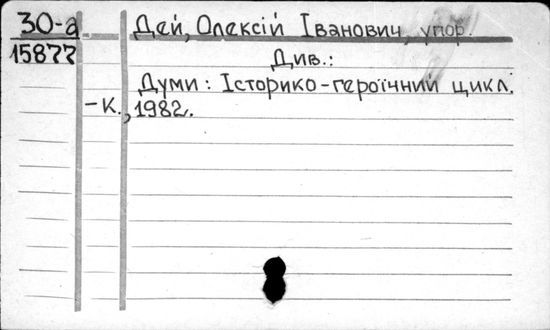 30-а. Дей, Олексій Іванович, упор.
15877 Див.:
Думи: Історико-героїчний цикл.
-К., 1982.